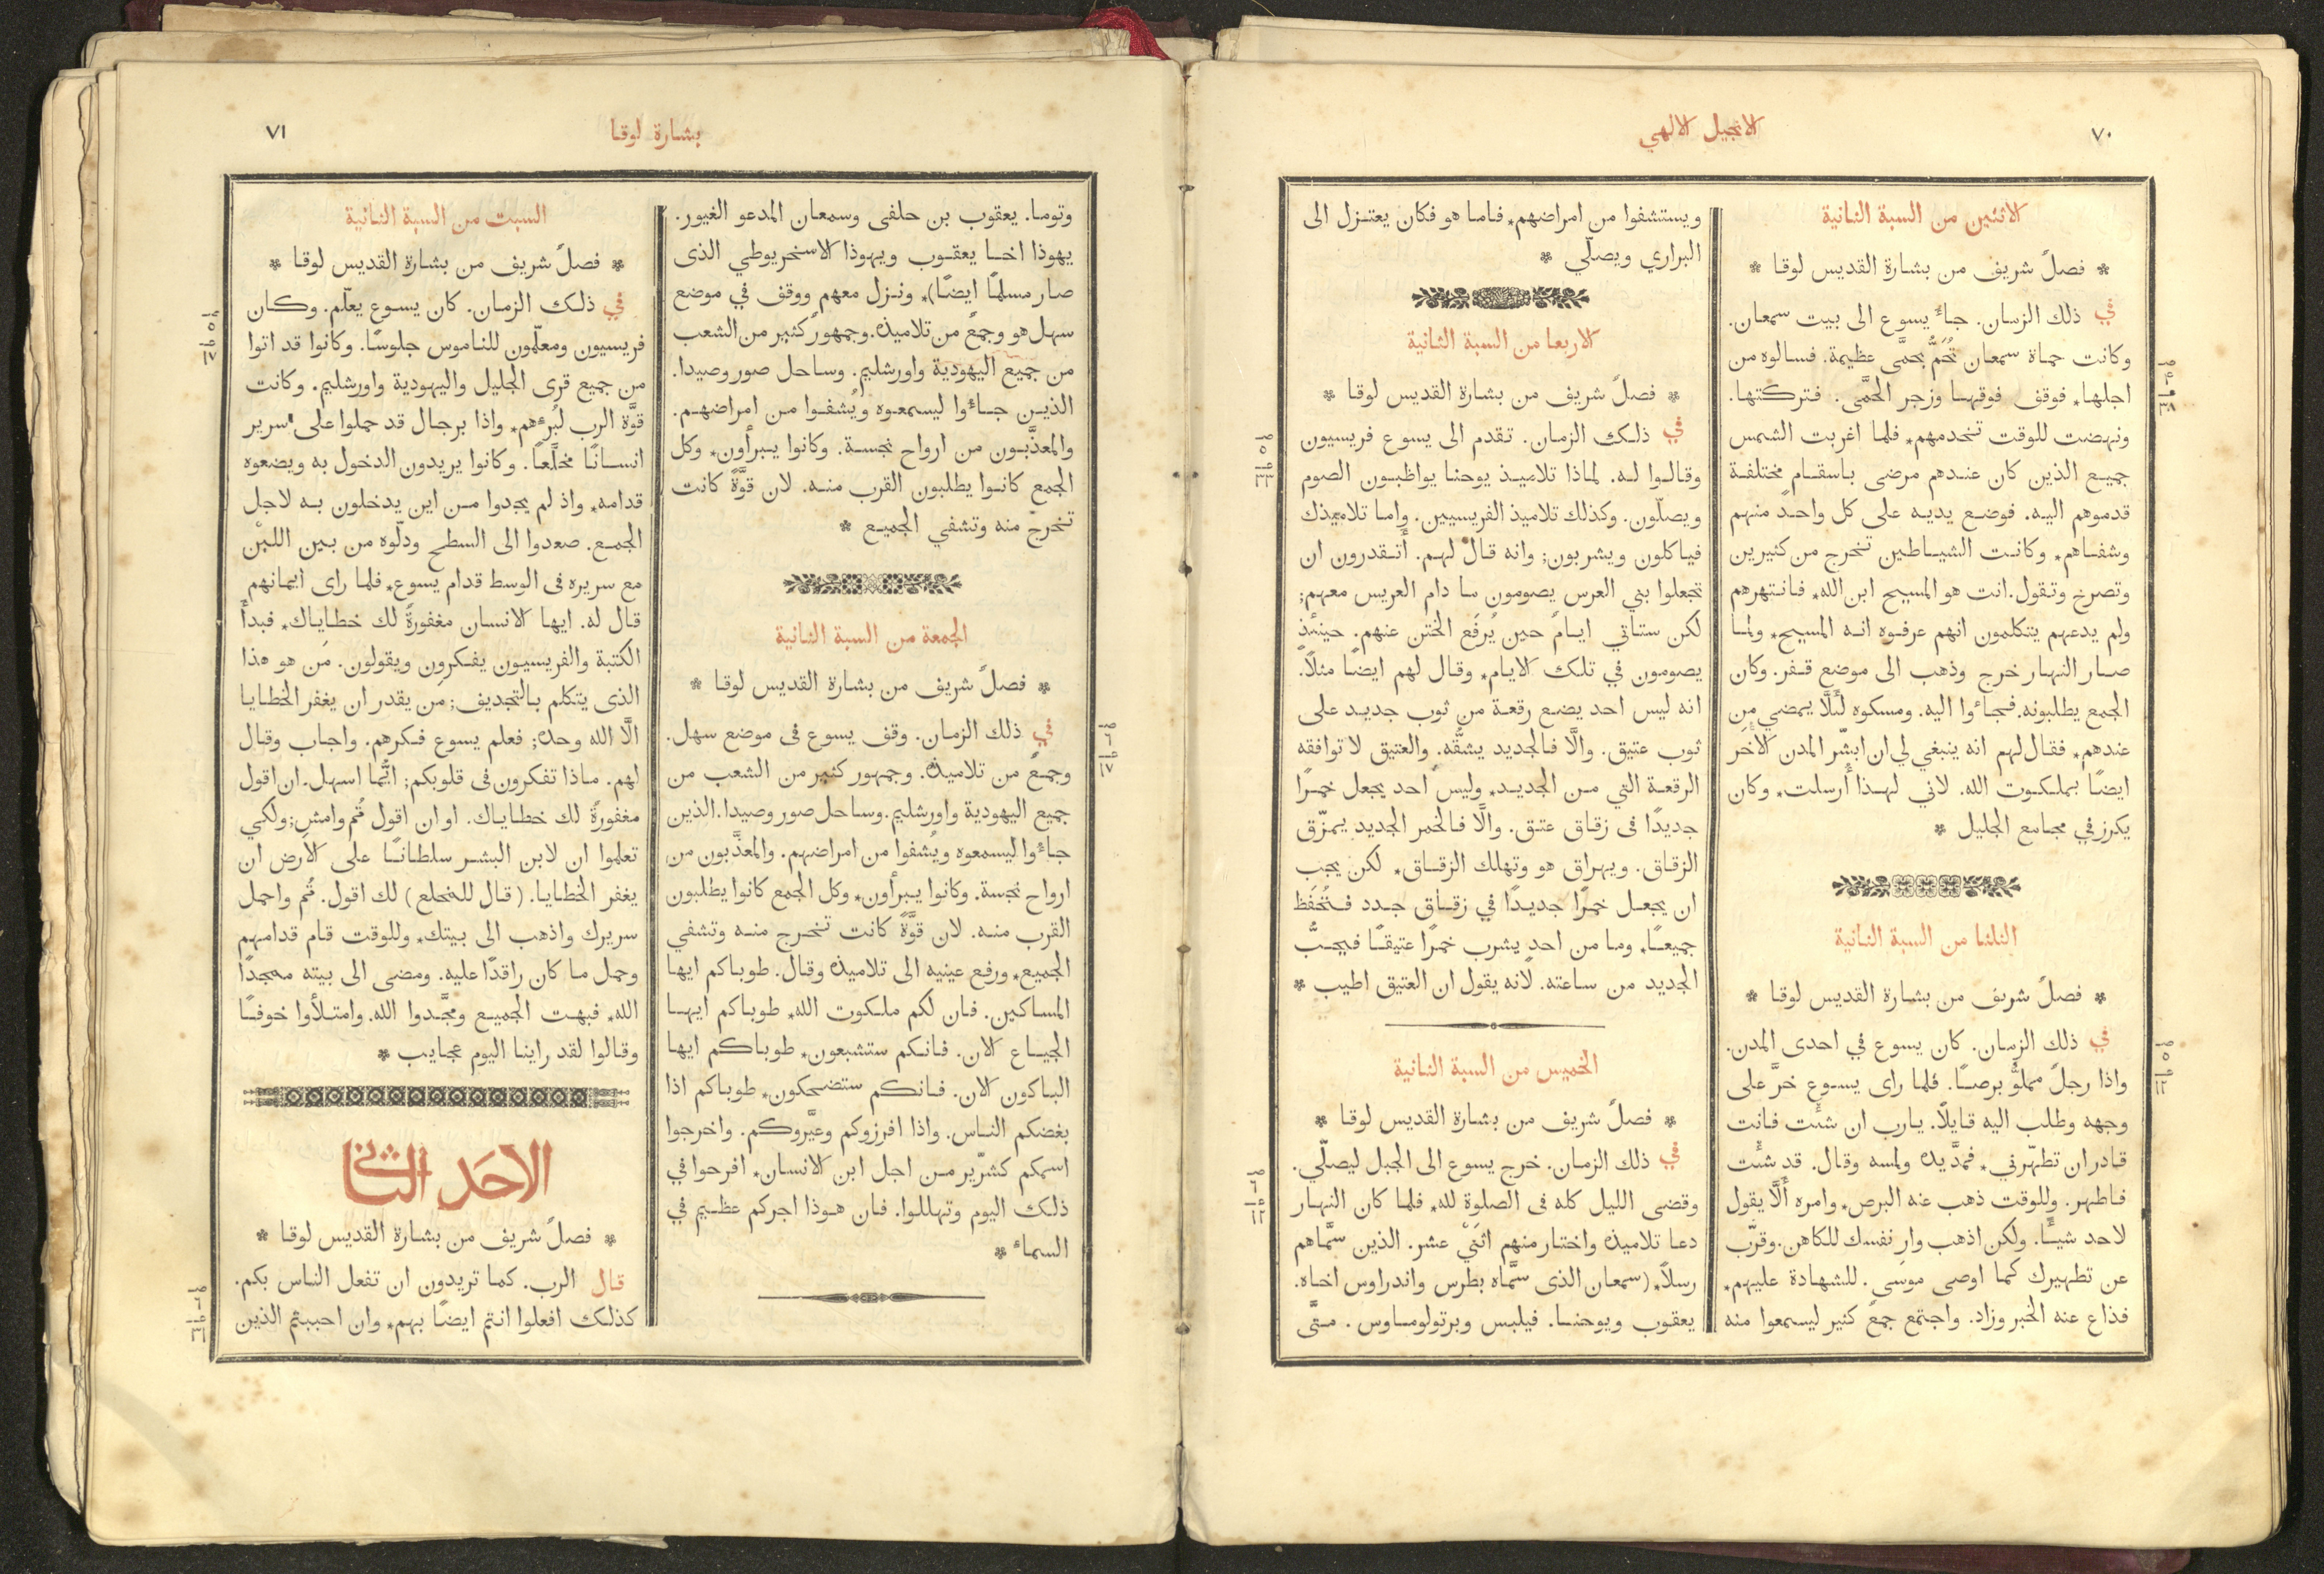 ٧٠
الانجيل الالهي
الاثنين من السبة الثانية
* فصلً شريف من بشارة القديس لوقا *
في ذلك الزمان. جاء يسوع الى بيت سمعان.
وكانت حماة سمعان تُحَمُّ بحمَّى عظيمة. فسالوه من
اجلها* فوقف فوقها وزجر الحمَّى. فتركتها.
ونهضت للوقت تخدمهم* فلما اغربت الشمس
جميع الذين كان عندهم مرضى باسقام مختلفة
قدموهم اليه. فوضع يديه على كل واحدٍ منهم
وشفاهم* وكانت الشياطين تخرج من كثيرين
وتصرخ وتقول. انت هو المسيح ابن الله* فانتهرهم
ولم يدعهم يتكلمون انهم عرفوه انه المسيح* ولما
صار النهار خرج وذهب الى موضع قفر. وكان
الجمع يطلبونه. فجاءوا اليه. ومسكوه لئَلَّا يمضي من
عندهم* فقال لهم انه ينبغي لي ان ابشّر المدن الأُخَر
ايضًا بملكوت الله. لاني لهذا أُرسلت* وكان
يكرز في مجامع الجليل *
الثلثا من السبة الثانية
* فصلً شريف من بشارة القديس لوقا *
في ذلك الزمان. كان يسوع في احدى المدن.
واذا رجلً مملوٌّ برصًا. فلما راى يسوع خرَّ على
وجهه وطلب اليه قايلًا. يارب ان شئت فانت
قادر ان تطهّرني* فمدَّ يده ولمسه وقال. قد شئت
فاطهر. وللوقت ذهب عنه البرص* وامره أَلَّا يقول
لاحد شيئًا. ولكن اذهب وارِ نفسك للكاهن. وقرّب
عن تطهيرك كما اوصى موسى. للشهادة عليهم*
فذاع عنه الخبر وزاد. واجتمع جمعً كثير ليسمعوا منه
ويستشفوا من امراضهم* فاما هو فكان يعتزل الى
البراري ويصلّي *
الاربعا من السبة الثانية
* فصلً شريف من بشارة القديس لوقا *
في ذلك الزمان. تقدم الى يسوع فريسيون
وقالوا له. لماذا تلاميذ يوحنا يواظبون الصوم
ويصلّون. وكذلك تلاميذ الفريسيين. واما تلاميذك
فياكلون ويشربون; وانه قال لهم. أَتقدرون ان
تجعلوا بني العرس يصومون ما دام العريس معهم;
لكن ستاتي ايامً حين يُرفَع الختن عنهم. حينئذٍ
يصومون في تلك الايام* وقال لهم ايضًا مثلًا.
انه ليس احد يضع رقعة من ثوب جديد على
ثوب عتيق. والَّا فالجديد يشقُّه. والعتيق لا توافقه
الرقعة التي من الجديد* وليس احد يجعل خمرًا
جديدًا فى زقاق عتق. والَّا فالخمر الجديد يمزّق
الزقاق. ويهراق هو وتهلك الزقاق* لكن يجب
ان يجعل خمرًا جديدًا في زقاق جدد فتُحفَظ
جميعًا* وما من احدٍ يشرب خمرًا عتيقًا فيحبُّ
الجديد من ساعته. لانه يقول ان العتيق اطيب *
الخميس من السبة الثانية
* فصلً شريف من بشارة القديس لوقا *
في ذلك الزمان. خرج يسوع الى الجبل ليصلّي.
وقضى الليل كله فى الصلوة لله* فلما كان النهار
دعا تلاميذه واختار منهم اثنَيْ عشر. الذين سمَّاهم
رسلاً* (سمعان الذى سمَّاه بطرس واندراوس اخاه.
يعقوب ويوحنا. فيلبس وبرتولوماوس. متَّى
بشارة لوقا
٧١
وتوما. يعقوب بن حلفى وسمعان المدعو الغيور.
يهوذا اخا يعقوب ويهوذا الاسخريوطي الذى
صار مسلمًا ايضًا)* ونزل معهم ووقف في موضع
سهل هو وجمعً من تلاميذه. وجمهورً كثير من الشعب
من جميع اليهودية واورشليم. وساحل صور وصيدا.
الذين جاءوا ليسمعوه ويُشفوا من امراضهم.
والمعذَّبون من ارواح نجسة. وكانوا يبرأون* وكل
الجمع كانوا يطلبون القرب منه. لان قوَّةً كانت
تخرج منه وتشفي الجميع *
الجمعة من السبة الثانية
* فصلً شريف من بشارة القديس لوقا *
في ذلك الزمان. وقف يسوع فى موضع سهل.
وجمعً من تلاميذه. وجمهور كثير من الشعب من
جميع اليهودية واورشليم. وساحل صور وصيدا. الذين
جاءوا ليسمعوه ويُشفوا من امراضهم. والمعذَّبون من
ارواح نجسة. وكانوا يبرأون* وكل الجمع كانوا يطلبون
القرب منه. لان قوَّةً كانت تخرج منه وتشفي
الجميع* ورفع عينيه الى تلاميذه وقال. طوباكم ايها
المساكين. فان لكم ملكوت الله* طوباكم ايها
الجياع الان. فانكم ستشبعون* طوباكم ايها
الباكون الان. فانكم ستضحكون* طوباكم اذا
بغضكم الناس. واذا افرزوكم وعيَّروكم. واخرجوا
اسمكم كشرّير من اجل ابن الانسان* افرحوا في
ذلك اليوم وتهللوا. فان هوذا اجركم عظيم في
السماء *
السبت من السبة الثانية
* فصلً شريف من بشارة القديس لوقا *
في ذلك الزمان. كان يسوع يعلّم. وكان
فريسيون ومعلّمون للناموس جلوسًا. وكانوا قد اتوا
من جميع قرى الجليل واليهودية واورشليم. وكانت
قوَّة الرب لبُرءِهم* واذا برجال قد حملوا على سرير
انسانًا مخلَّعًا. وكانوا يريدون الدخول به ويضعوه
قدامه* واذ لم يجدوا من اين يدخلون به لاجل
الجمع. صعدوا الى السطح ودلّوه من بين اللبْن
مع سريره فى الوسط قدام يسوع* فلما راى ايمانهم
قال له. ايها الانسان مغفورةً لك خطاياك* فبدأَ
الكتبة والفريسيون يفكرون ويقولون. مَن هو هذا
الذى يتكلم بالتجديف; من يقدر ان يغفر الخطايا
الَّا الله وحده; فعلم يسوع فكرهم. واجاب وقال
لهم. ماذا تفكرون فى قلوبكم; ايُّما اسهل. ان اقول
مغفورةً لك خطاياك. او ان اقول قُم وامشِ; ولكي
تعلموا ان لابن البشر سلطانًا على الارض ان
يغفر الخطايا. (قال للمخلع) لك اقول. قُم واحمل
سريرك واذهب الى بيتك* وللوقت قام قدامهم
وحمل ما كان راقدًا عليه. ومضى الى بيته ممجدًا
الله* فبهت الجميع ومجَّدوا الله. وامتلأوا خوفًا
وقالوا لقد راينا اليوم عجايب *
الاحَد الثانى
* فصلً شريف من بشارة القديس لوقا *
قال الرب. كما تريدون ان تفعل الناس بكم.
كذلك افعلوا انتم ايضًا بهم* وان احببتم الذين